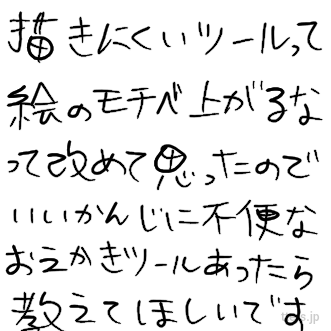 描きにくいツールって
絵のモチベ上がるな
って改めて思ったので
いいかんじに不便な
おえかきツールあったら
教えてほしいです